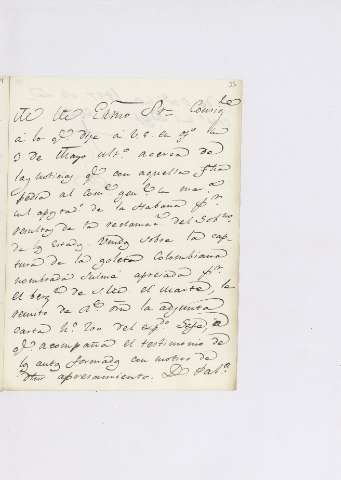 35
Exmo Sor
á lo qe dije á V.E. en
3 de Mayo ultº acerca de
las noticias qe con aquella fha
pedia al Comte genl
apostº de la Habana pr
resultas de la reclamn del Gobno
de los Estados Unidos sobre la cap-
tura de la goleta Colombiana
nombrada Zulme apresada pr
el bergn de S.M. el Marte, le
remito de Rl orn la adjunta
carta Nº 200 del Gefe, a
qe acompaña el testimonio de
los autos formados con motivo de
dho apresamiento. D